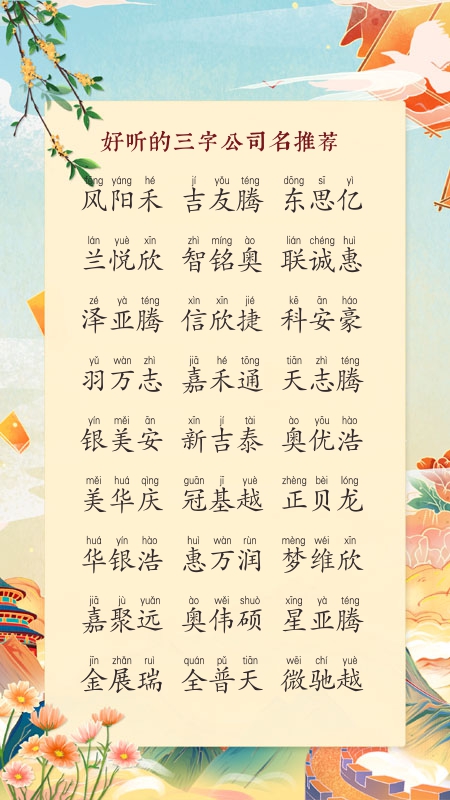 好听的三字公司名推荐
fēng yáng hé jí yǒu téng dōng sī yì
风阳禾 吉友腾 东思亿
lán yuè xīn zhì míng ào lián chéng huì
兰悦欣 智铭奥 联诚惠
zé yà téng xìn xīn jié kē ān háo
泽亚腾 信欣捷 科安豪
yǔ wàn zhì jiā hé tōng tiān zhì téng
羽万志 嘉禾通 天志腾
yín měi ān xīn jí tài ào yōu hào
银美安 新吉泰 奥优浩
měi huá qìng guān jī yuè zhèng bèi lóng
美华庆 冠基越 正贝龙
huá yín hào huì wàn rùn mèng wéi xīn
华银浩 惠万润 梦维欣
jiā jù yuǎn ào wěi shuò xīng yà téng
嘉聚远 奥伟硕 星亚腾
jīn zhǎn ruì quán pǔ tiān wēi chí yuè
金展瑞 全普天 微驰越